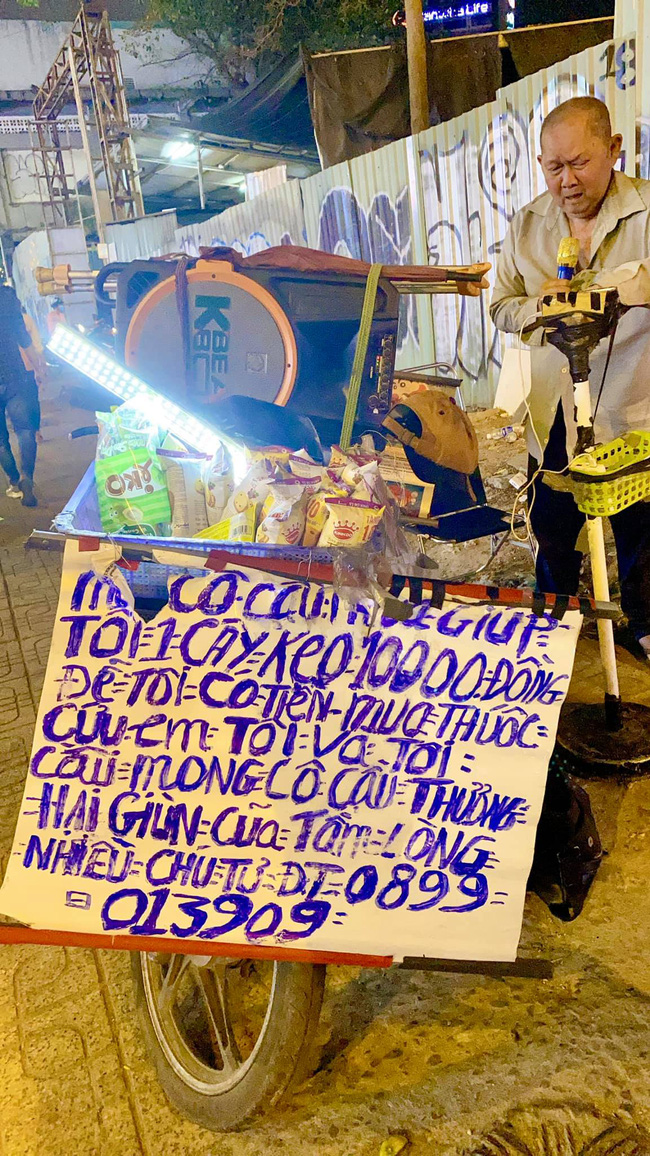 KBEA
K80
18
CÔ CẬU GIÚP=
TÔI=1=CÂY=KẸO=10000=ĐỒNG
ĐỀ=TÔI=CÓ=TIỀN=MUA=THUỐC=
CỨU=EM=TÔI=VÀ=TÔI=
CẦU=MONG=CÔ CẬU=THƯỞNG=
=HẠI GIÙN=CŨA=TẤM=LONG=
NHIỀU=CHÚ=TƯ=ĐT=0899=
013909=